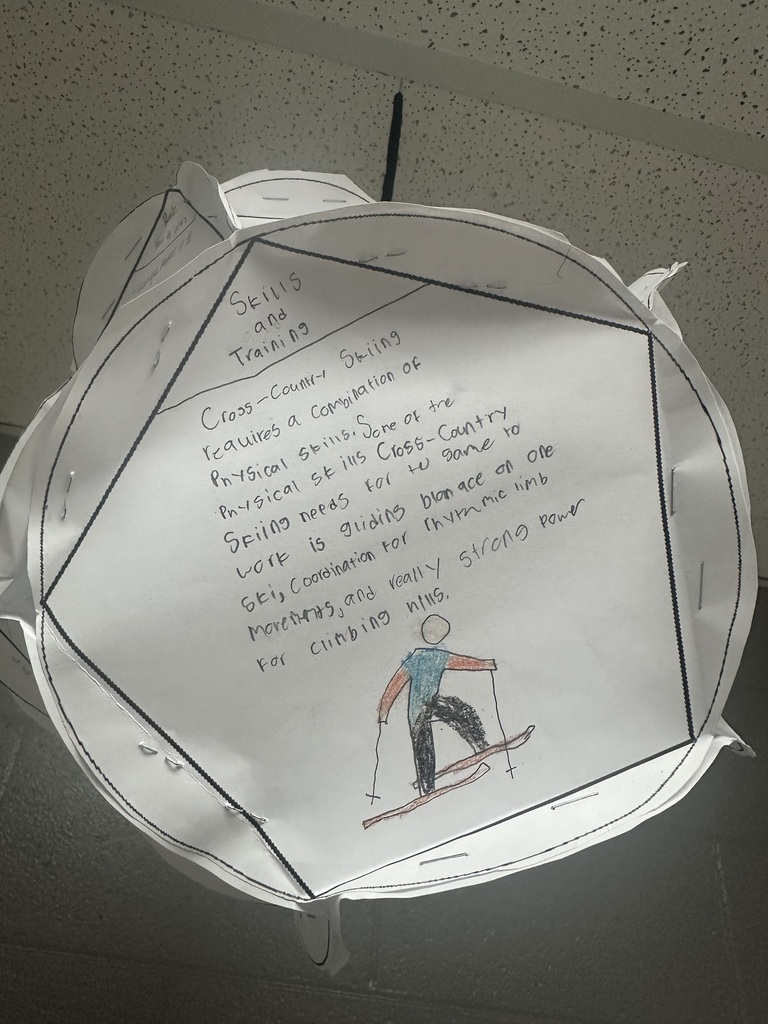 Skills
and
Training
Cross-Country Skiing
requires a combination of
Physical skills. Some of the
Physical skills Cross-Country
Skiing needs for to same to
work is gliding blanace on one
ski, coordination for rhythmic limb
movements, and really strong power
for climbing hills.